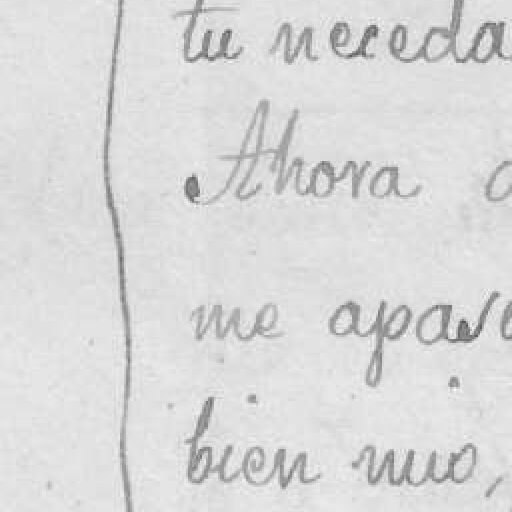 tu neceda
Ahora
me apare
bien mio,